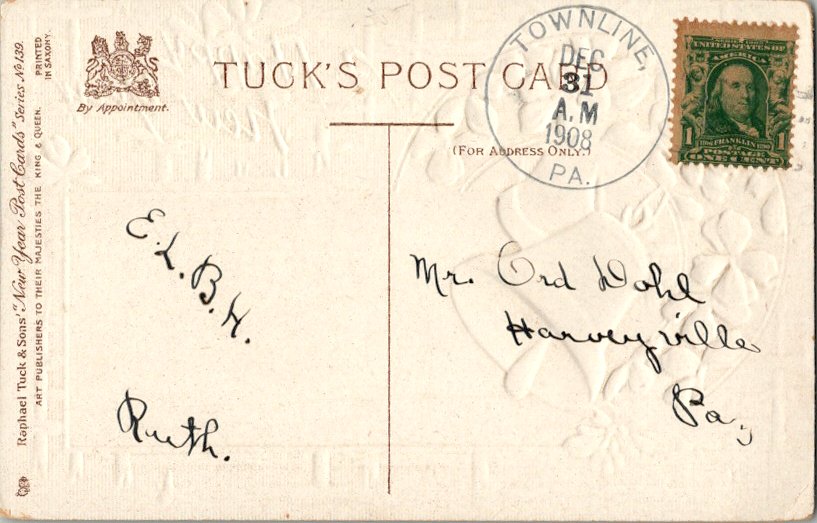 Raphael Tuck & Sons' "New Year Post Cards" Series No 139.
ART PUBLISHERS TO THEIR MAJESTIES THE KING & QUEEN.
PRINTED
IN SAXONY.
By Appointment.
TUCK'S POST CARD
(FOR ADDRESS ONLY.)
TOWNLINE,
DEC
31
A.M
1908
PA.
UNITED STATES OF
AMERICA
1 FRANKLIN 1
ONE CENT
E.L.B.H.
Ruth.
Mr. Ord Dohl
Harveyville
Pa,